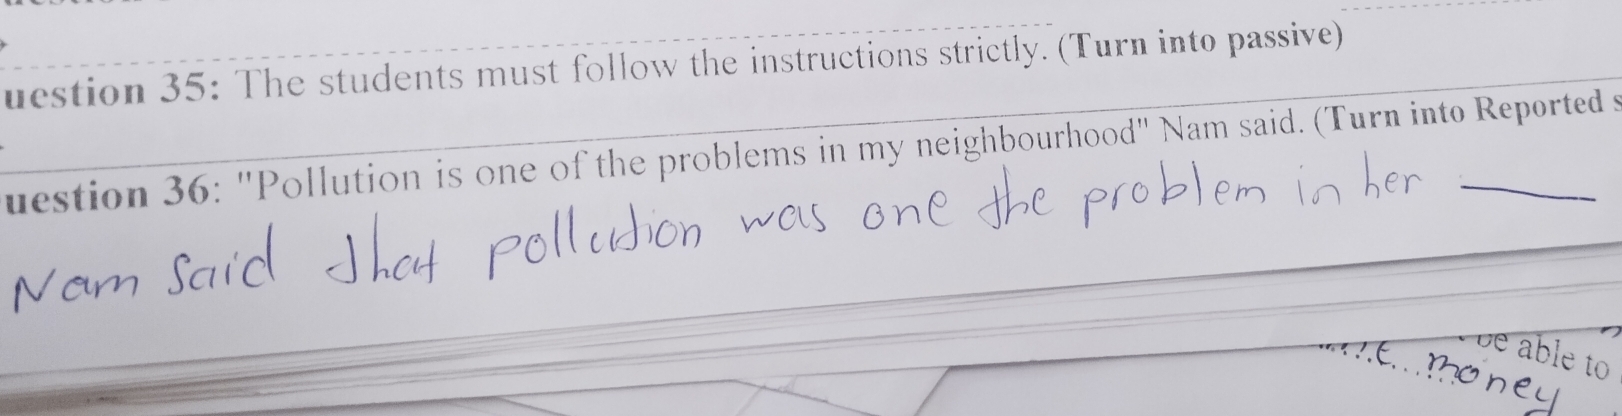 uestion 35: The students must follow the instructions strictly. (Turn into passive)
uestion 36: "Pollution is one of the problems in my neighbourhood" Nam said. (Turn into Reported s
Nam said that pollution was one the problem in her
be able to
money